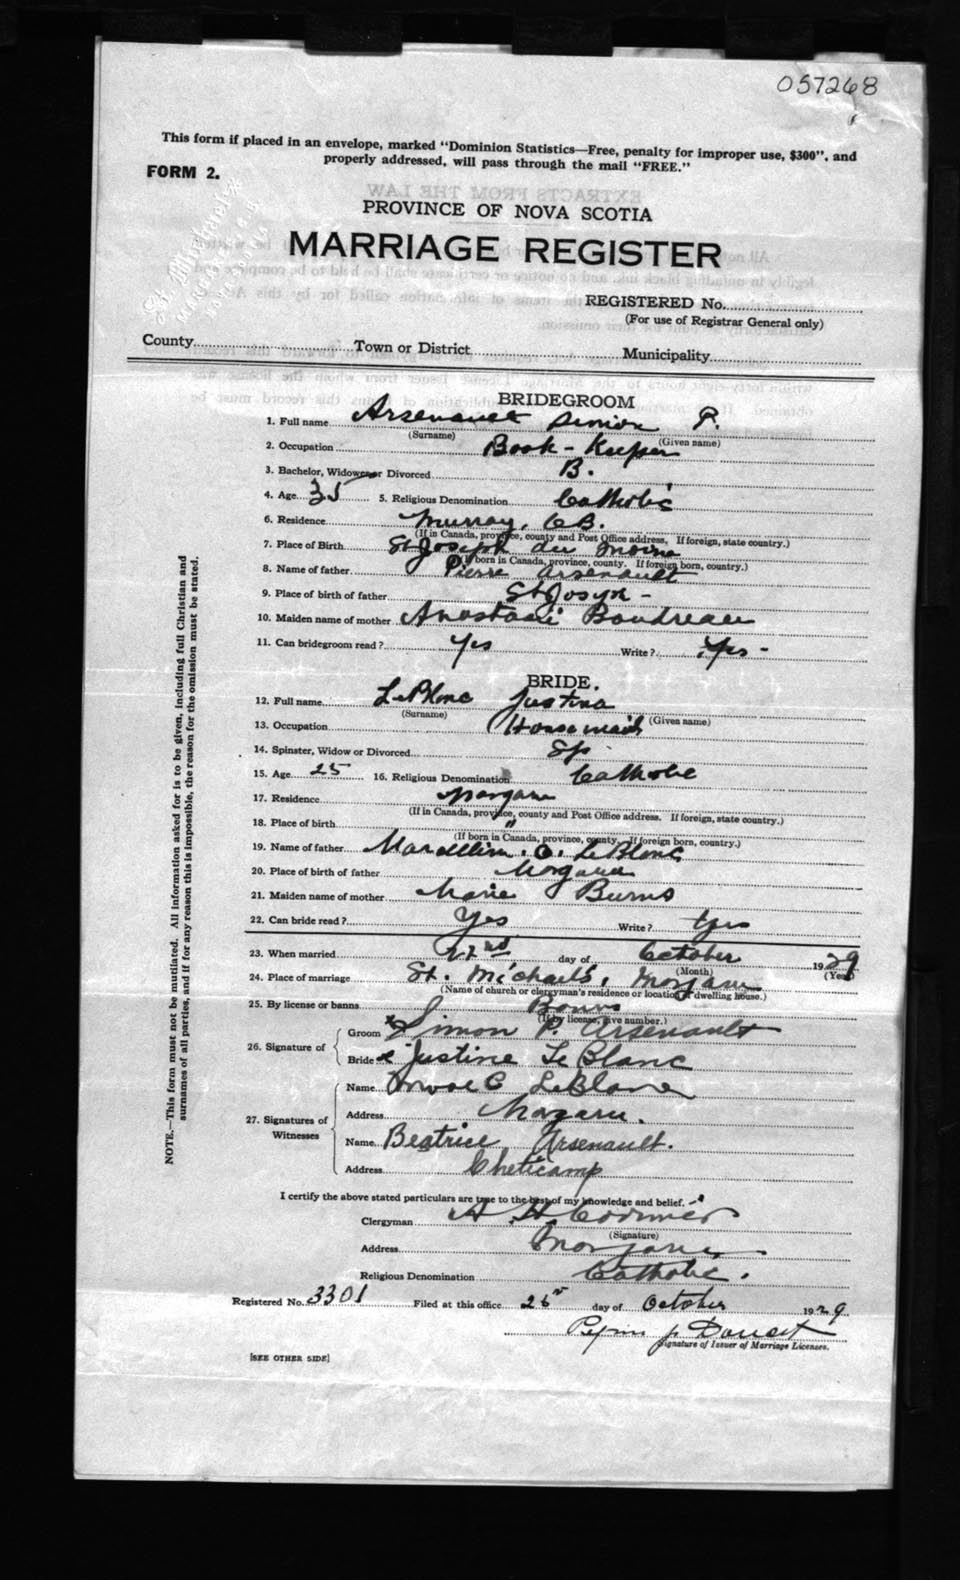 057268
This form if placed in an envelope, marked "Dominion Statistics—Free, penalty for improper use, $300", and
properly addressed, will pass through the mail "FREE."
FORM 2.
PROVINCE OF NOVA SCOTIA
MARRIAGE REGISTER
REGISTERED No.
(For use of Registrar General only)
County Town or District Municipality
BRIDEGROOM
1. Full name Arsenault Simon P.
(Surname) (Given name)
2. Occupation Book-Keeper
3. Bachelor, Widower or Divorced B.
4. Age 35 5. Religious Denomination Catholic
6. Residence Murray, C.B.
(If in Canada, province, county and Post Office address, If foreign, state country.)
7. Place of Birth St Joseph du Moine
(If born in Canada, province, county. If foreign born, country.)
8. Name of father Pierre Arsenault
9. Place of birth of father St Joseph -
10. Maiden name of mother Boudreau
11. Can bridegroom read? Yes Write? Yes -
BRIDE.
12. Full name LeBlanc Justina
(Surname) (Given name)
13. Occupation Housemaid
14. Spinster, Widow or Divorced Sp
15. Age 25 16. Religious Denomination Catholic
17. Residence Margaree
(If in Canada, province, county and Post Office address. If foreign, state country.)
18. Place of birth "
(If born in Canada, province, county. If foreign born, country.)
19. Name of father LeBlanc
20. Place of birth of father Margaree
21. Maiden name of mother Marie Burns
22. Can bride read? Yes Write? Yes
23. When married 22nd day of October 1929
(Month) (Year)
24. Place of marriage St. Michael's, Margaree
(Name of church or clergyman's residence or location of dwelling house.)
25. By license or banns Banns
(If by license, give number.)
26. Signature of
Groom x Simon P. Arsenault
Bride x Justine LeBlanc
27. Signatures of
Witnesses
Name C LeBlanc
Address Margaree.
Name Beatrice Arsenault.
Address Cheticamp
I certify the above stated particulars are true to the best of my knowledge and belief.
Clergyman A H Cormier
(Signature)
Address Margaree
Religious Denomination Catholic.
Registered No. 3301 Filed at this office 26 day of October 1929
J. Doucet
Signature of Issuer of Marriage Licenses.
[SEE OTHER SIDE]
NOTE.—This form must not be mutilated. All information asked for is to be given, including full Christian and
surnames of all parties, and if for any reason this is impossible, the reason for the omission must be stated.